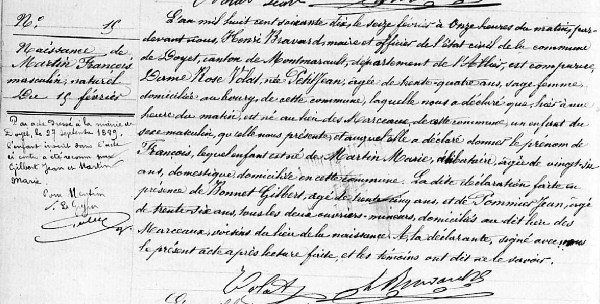 N.° 15
Naissance de
Martin François
masculin, naturel
Du 15 février
Par acte dressé à la mairie de
Doyet, le 27 septembre 1879,
l'enfant inscrit dans l'acte
ci contre a été reconnu par
Gilbert Jean et Martin
Marie
Pour Mention
L'an mil huit cent soixante dix, le seize février à onze heures du matin, par-
devant nous, Henri Bravard, maire et officier de l'état civil de la commune
de Doyet, canton de Montmarault, département de l'Allier, est comparue,
Dame Rose Volat, née Petitjean, agée de trente quatre ans, sage femme,
domiciliée au bourg, de cette commune, laquelle nous a déclaré que, hier à une
heure du matin, est né au lieu des Marceaux, de cette commune, un enfant du
sexe masculin, qu'elle nous présente, et auquel elle a déclaré donner le prénom de
François, lequel enfant est né de Martin Marie, célibataire, agée de vingt-six
ans, domestique domiciliée en cette commune. La dite déclaration faite en
présence de Bonnet Gilbert, agé de trente cinq ans, et de Pommier Jean, agé
de trente six ans, tous les deux ouvriers-mineurs, domiciliés au dit lieu des
Marceaux, voisins du lieu de la naissance. A la déclarante, signé avec nous
le présent acte après lecture faite, et les témoins ont dit ne le savoir.
Volat H Bravard